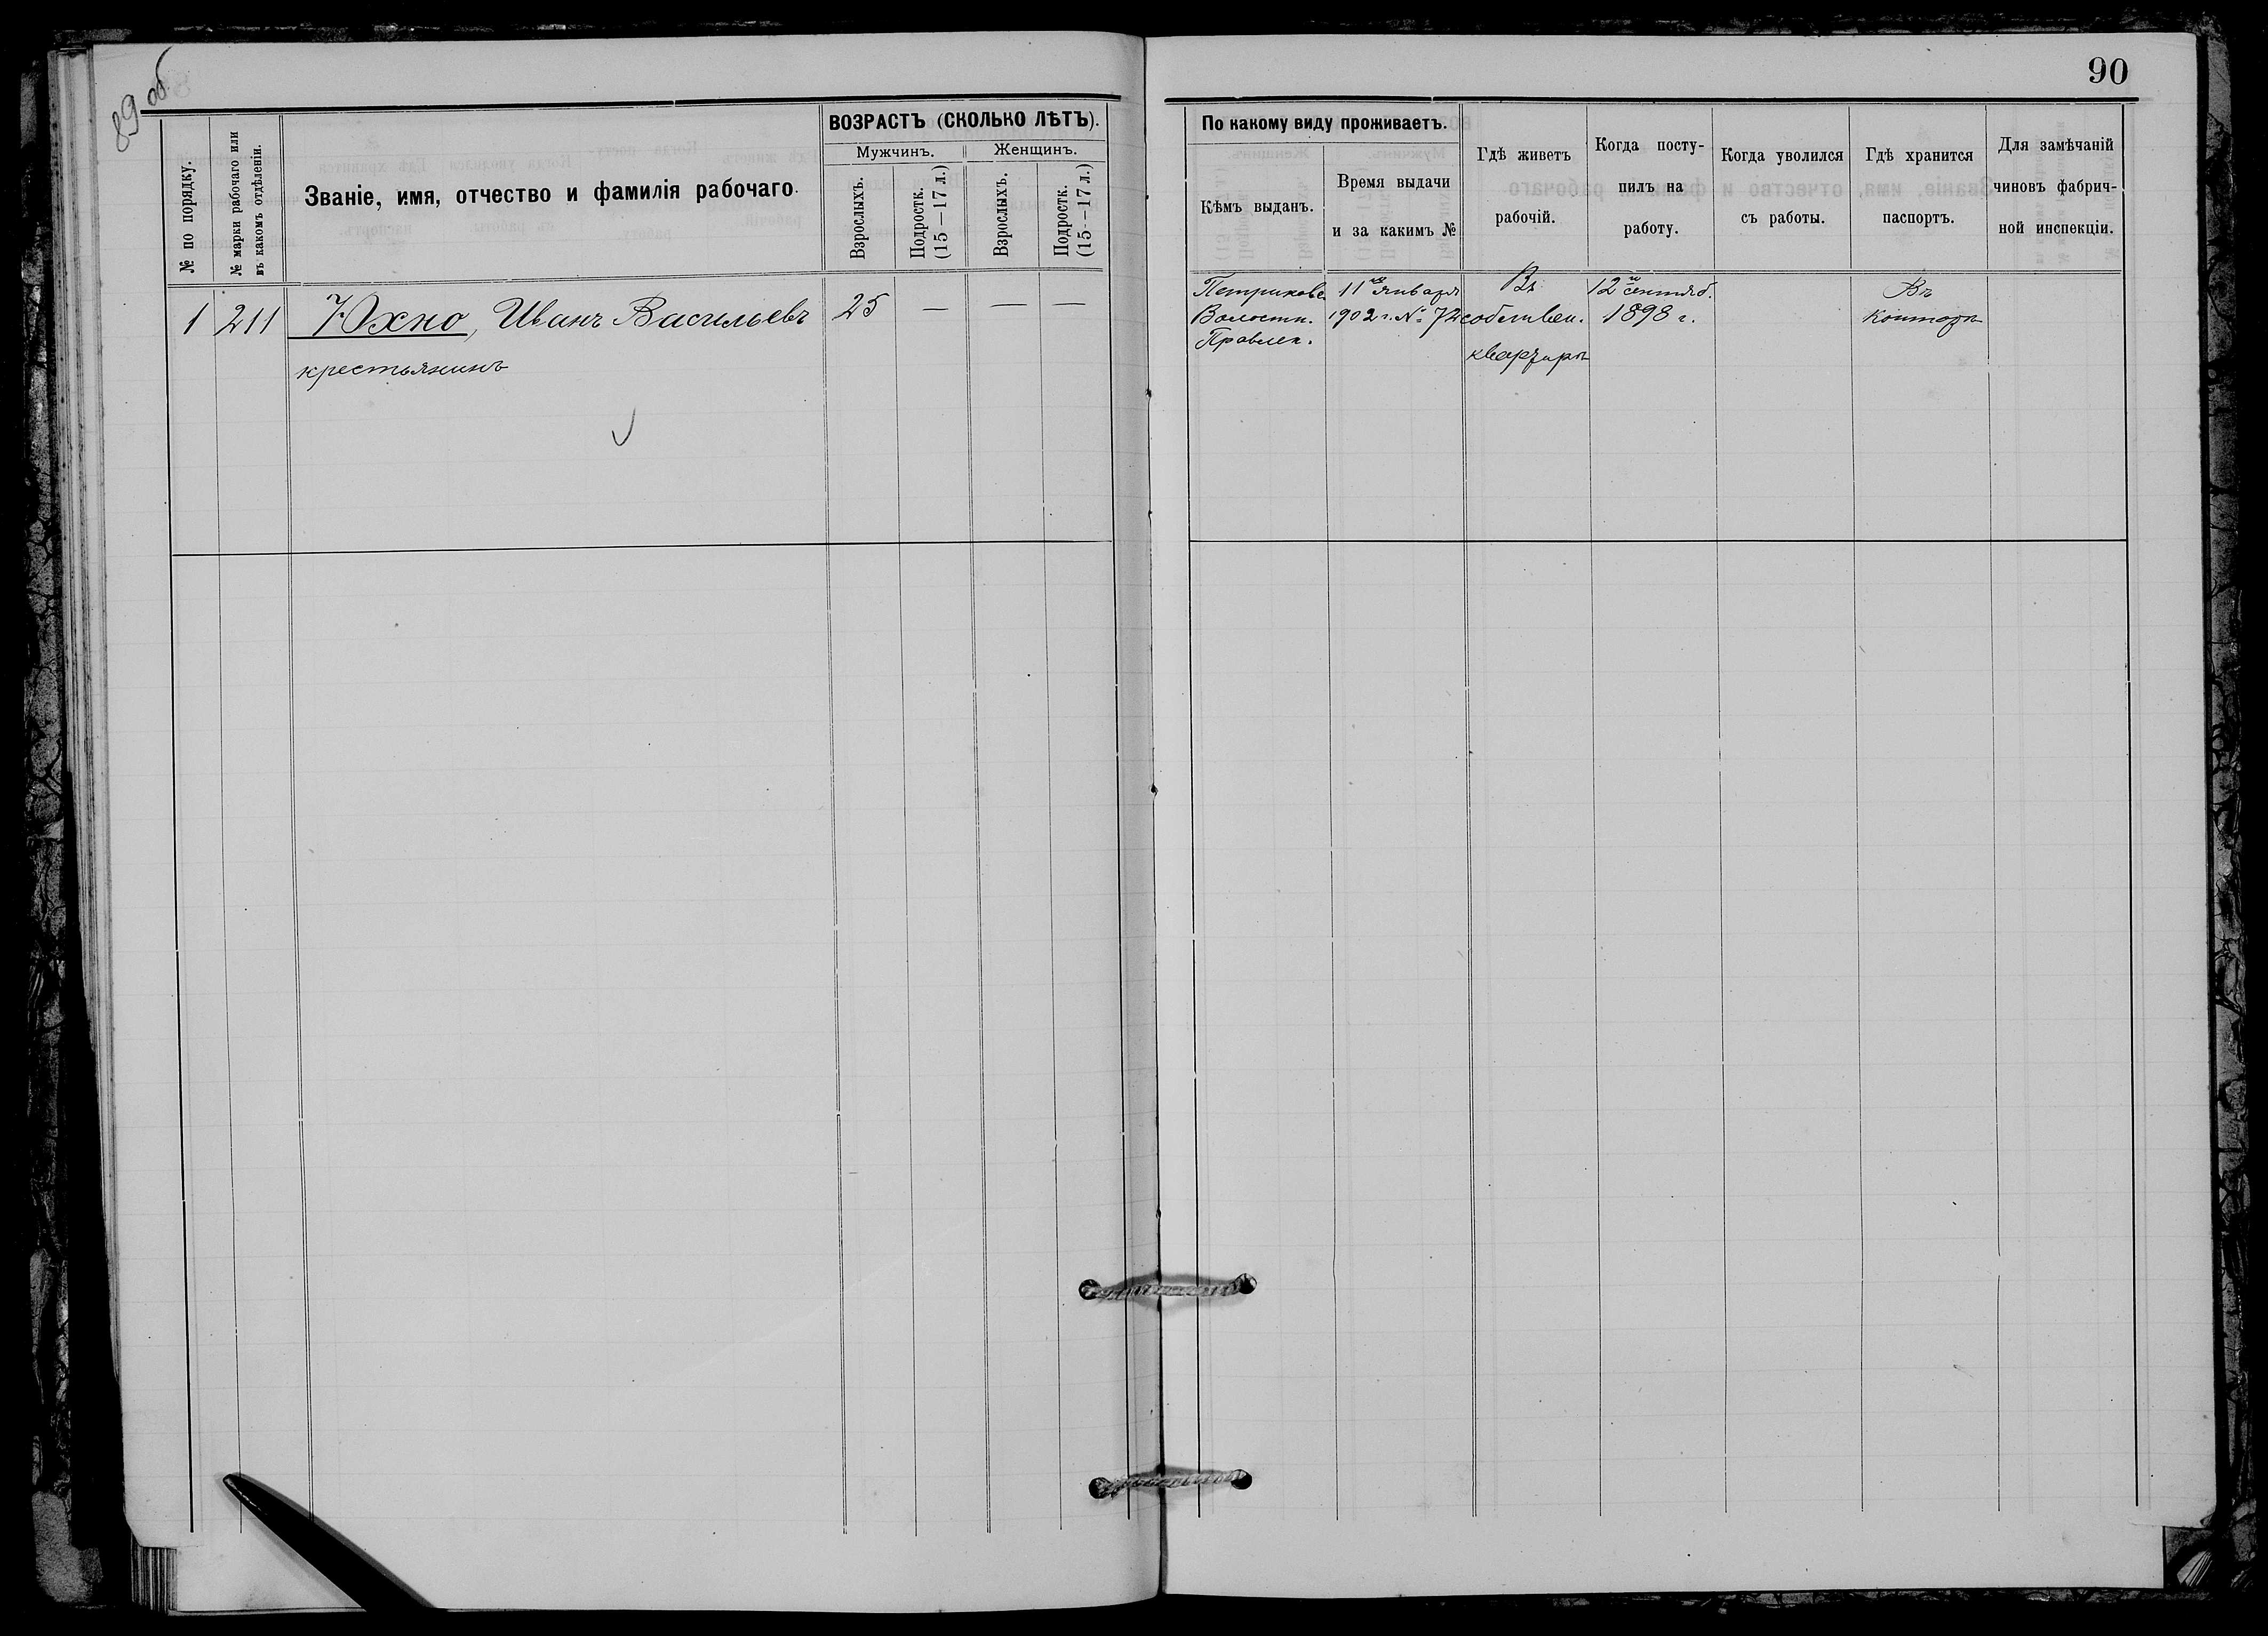 89 об.
90
№ по порядку.
№ марки рабочаго или
въ какомъ отдѣленіи.
Званіе, имя, отчество и фамилія рабочаго.
ВОЗРАСТЪ (СКОЛЬКО ЛѢТЪ).
Мужчинъ.
Женщинъ.
Взрослыхъ.
Подростк.
(15—17 л.)
Взрослыхъ.
Подростк.
(15—17 л.)
По какому виду проживаетъ.
Кѣмъ выданъ.
Время выдачи
и за какимъ №
Гдѣ живетъ
рабочій.
Когда посту-
пилъ на
работу.
Когда уволился
съ работы.
Гдѣ хранится
паспортъ.
Для замѣчаній
чиновъ фабрич-
ной инспекціи.
1
211
Юхно, Иванъ Васильевъ
крестьянинъ
25
—
—
—
Петриковс.
Волостн.
Правлен.
11го января
1902 г. № 72
Въ
собствен.
квартирѣ
12 сентяб.
1898 г.
Въ
Конторѣ